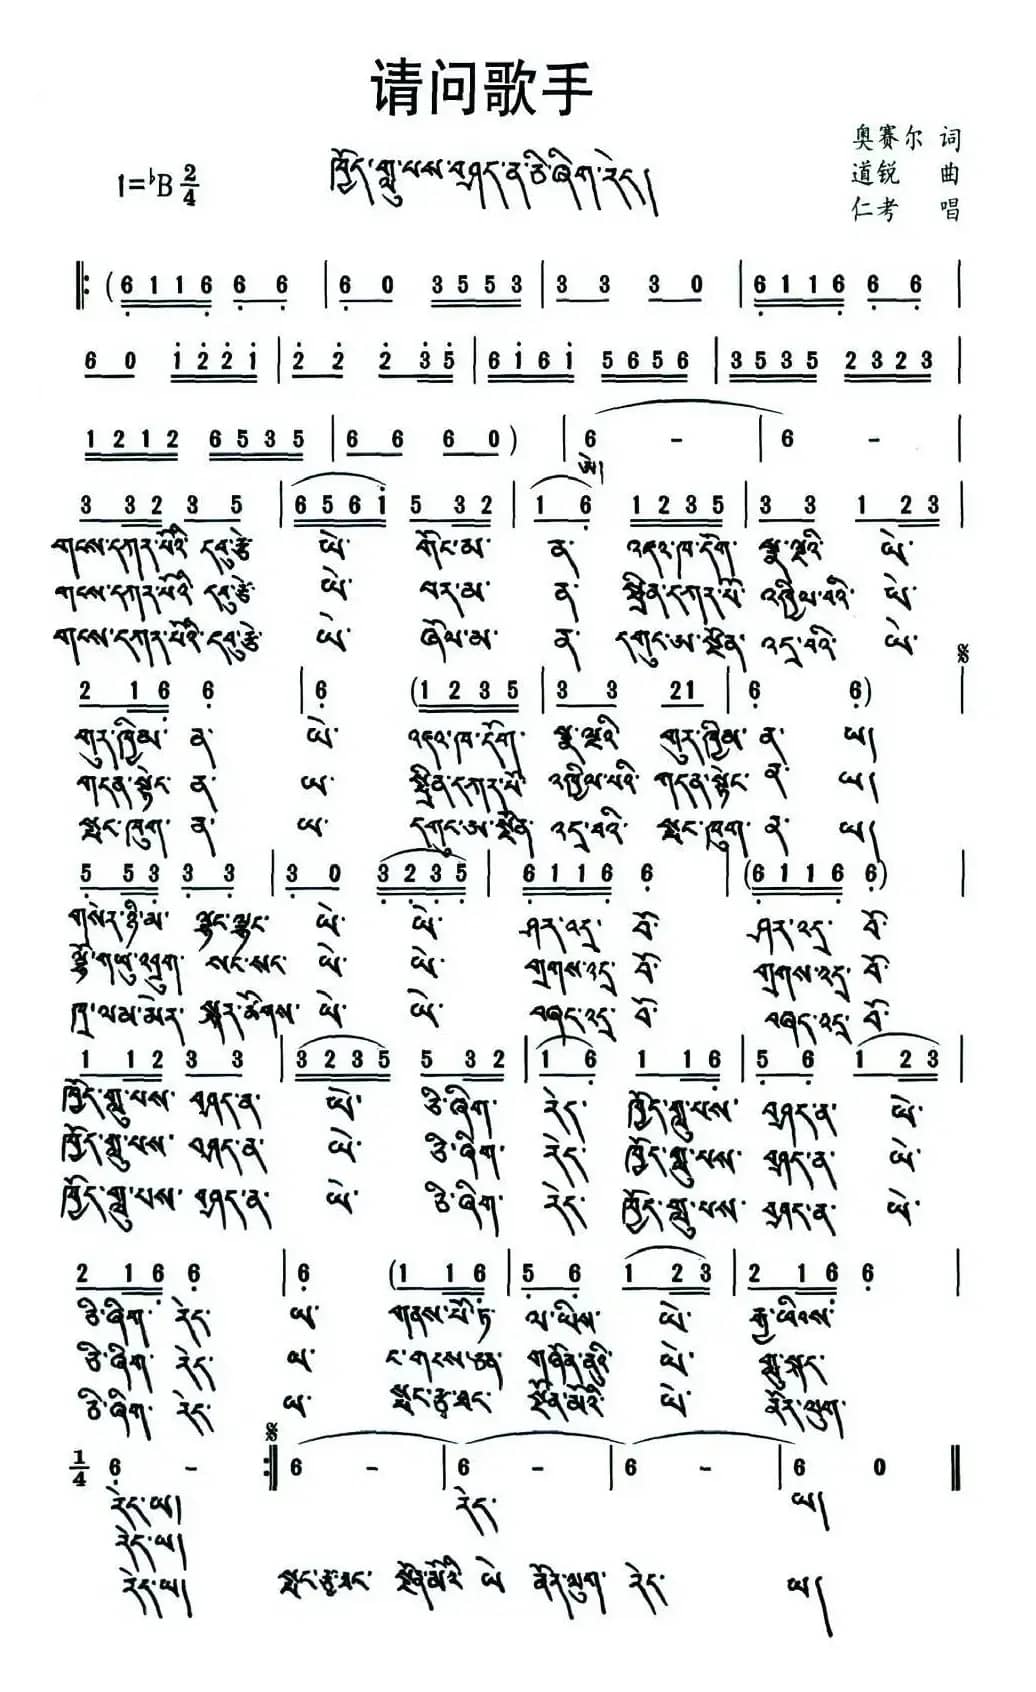 请问歌手
奥赛尔 词
1=♭B 2/4 ཁྱོད་གླུ་པས་བཤད་ན་ཅི་ཞིག་རེད།
道锐 曲
仁考 唱
(6116 66 | 60 3553 | 33 30 | 6116 66 |
60 1221 | 22 235 | 6161 5656 | 3535 2323 |
1212 6535 | 66 60) | 6 - | 6 - |
ཨེ།
332 35 | 6561 532 | 16 1235 | 33 123 |
གངས་དཀར་པོའི་དབུ་རྩེ་ ཡེ་ གོང་མ་ ན་ འཇའ་ཁ་དོག་ སྣ་ལྔའི་ ཡེ་
གངས་དཀར་པོའི་དབུ་རྩེ་ ཡེ་ བར་མ་ ན་ སྤྲིན་དཀར་པོ་ འཁྱིལ་བའི་ ཡེ་
གངས་དཀར་པོའི་དབུ་རྩེ་ ཡེ་ ཞོལ་མ་ ན་ དགུང་ཨ་སྔོན་ འདྲ་བའི་ ཡེ་
216 6 | 6 (1235 | 33 21 | 6 6) |
གུར་ཁྱིམ་ ན་ ཡེ་ འཇའ་ཁ་དོག་ སྣ་ལྔའི་ གུར་ཁྱིམ་ ན་ ཡ།
གདན་སྟེང་ ན་ ཡ་ སྤྲིན་དཀར་པོ་ འཁྱིལ་པའི་ གདན་སྟེང་ ན་ ཡ།
སྤང་ཁུག་ ན་ ཡ་ དགུང་ཨ་སྔོན་ འདྲ་བའི་ སྤང་ཁུག་ ན་ ཡ།
553 33 | 30 3235 | 6116 6 | (6116 6) |
གསེར་ཉི་མ་ ལྷང་ལྷང་ ཡེ་ ཡེ་ ཤར་འདྲ་ བོ་ ཤར་འདྲ་ བོ་
ལྷོ་གཡུ་འབྲུག་ སང་སང་ ཡེ་ ཡེ་ གྲགས་འདྲ་ བོ་ གྲགས་འདྲ་ བོ་
ཁྲ་ལམ་མེར་ སྐར་ཚོགས་ ཡེ་ ཡེ་ བཞད་འདྲ་ བོ་ བཞད་འདྲ་ བོ་
112 33 | 3235 532 | 16 116 | 56 123 |
ཁྱོད་གླུ་པས་ བཤད་ན་ ཡེ་ ཅི་ཞིག་ རེད་ ཁྱོད་གླུ་པས་ བཤད་ན་ ཡེ་
ཁྱོད་གླུ་པས་ བཤད་ན་ ཡེ་ ཅི་ཞིག་ རེད་ ཁྱོད་གླུ་པས་ བཤད་ན་ ཡེ་
ཁྱོད་གླུ་པས་ བཤད་ན་ ཡེ་ ཅི་ཞིག་ རེད་ ཁྱོད་གླུ་པས་ བཤད་ན་ ཡེ་
216 6 | 6 (116 | 56 123 | 216 6 |
ཅི་ཞིག་ རེད་ ཡ་ གནས་པོ་ཏ་ ལ་ཡིས་ ཡེ་
ཅི་ཞིག་ རེད་ ཡ་ ང་གངས་ཅན་ གཞོན་ནུའི་ ཡེ་ གླུ་སྐད་
ཅི་ཞིག་ རེད་ ཡ་ སྤང་རྩྭ་ཐང་ སྔོན་མོའི་ ཡེ་ ནོར་ལུག་
1/4 6 - :| 6 - | 6 - | 6 - | 6 0 ‖
རེད་ཡ། རེད་ ཡ།
རེད་ཡ།
རེད་ཡ། སྤང་རྩྭ་ཐང་ སྔོན་མོའི་ ཡེ་ ནོར་ལུག་ རེད་ ཡ།